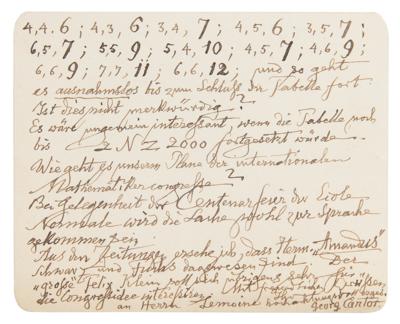 4,4,6; 4,3,6; 3,4,7; 4,5,6; 3,5,7;
6,5,7; 5,5,9; 5,4,10; 4,5,7; 4,6,9;
6,6,9; 7,7,11; 6,6,12; und so geht
es ausnahmslos bis zum Schluß der Tabelle fort
Ist dies nicht merkwürdig?
Es wäre ungemein interessant, wenn die Tabelle noch
bis 2NZ 2000 fortgesetzt würde.
Wie geht es unserm Plane der internationalen
Mathematikercongresse?
Bei Gelegenheit der Centenarfeier der Ecole
Normale wird die Sache wohl zur Sprache
gekommen sein.
Aus den Zeitungen ersehe ich, dass Herm. „Amandus"
Schwarz und Fuchs dagewesen sind. Der
„große" Felix Klein soll sich übrigens sehr für
die Congreßidee interessiren.
an Herrn Lemoine
Georg Cantor